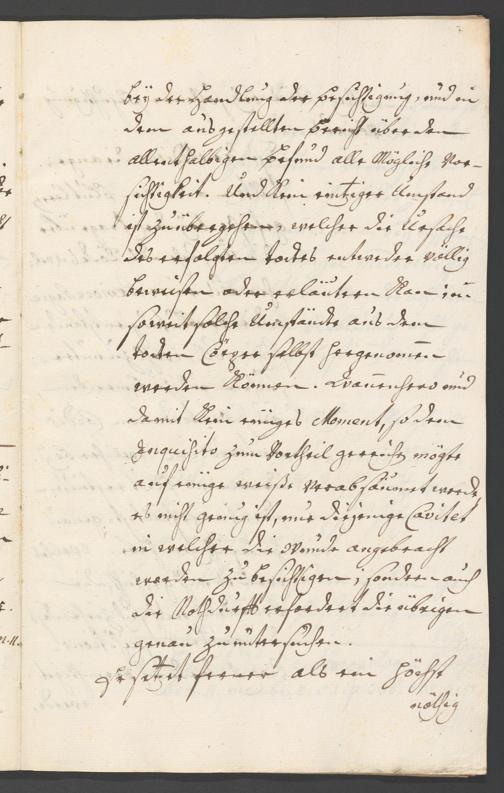 bey der Handlung der besichtigung, und in
dem ausgestellten bericht über den
allenthalbigen befund alle Mögliche Vor-
sichtigkeit. Und kein eintziger Umstand
ist zu übergehen, welcher die Ursache
des erfolgten todtes entweder völlig
beweisen oder erläutern kan; in
soweit solche Umstände aus dem
todten Cörper selbst hergenomen
werden können. Wannenhero und
damit kein einiges Moment, so dem
Inquisito zum Vortheil gereichen mögte
auf einige weiße verabsäumet werde,
es nicht genug ist, nur diejenige Cavitet
in welcher die Wunde angebracht
worden zu besichtigen, sondern auch
die Nothdurfft erfordert die übrigen
genau zu untersuchen.
Er setzet ferner als ein höchst
nöthig